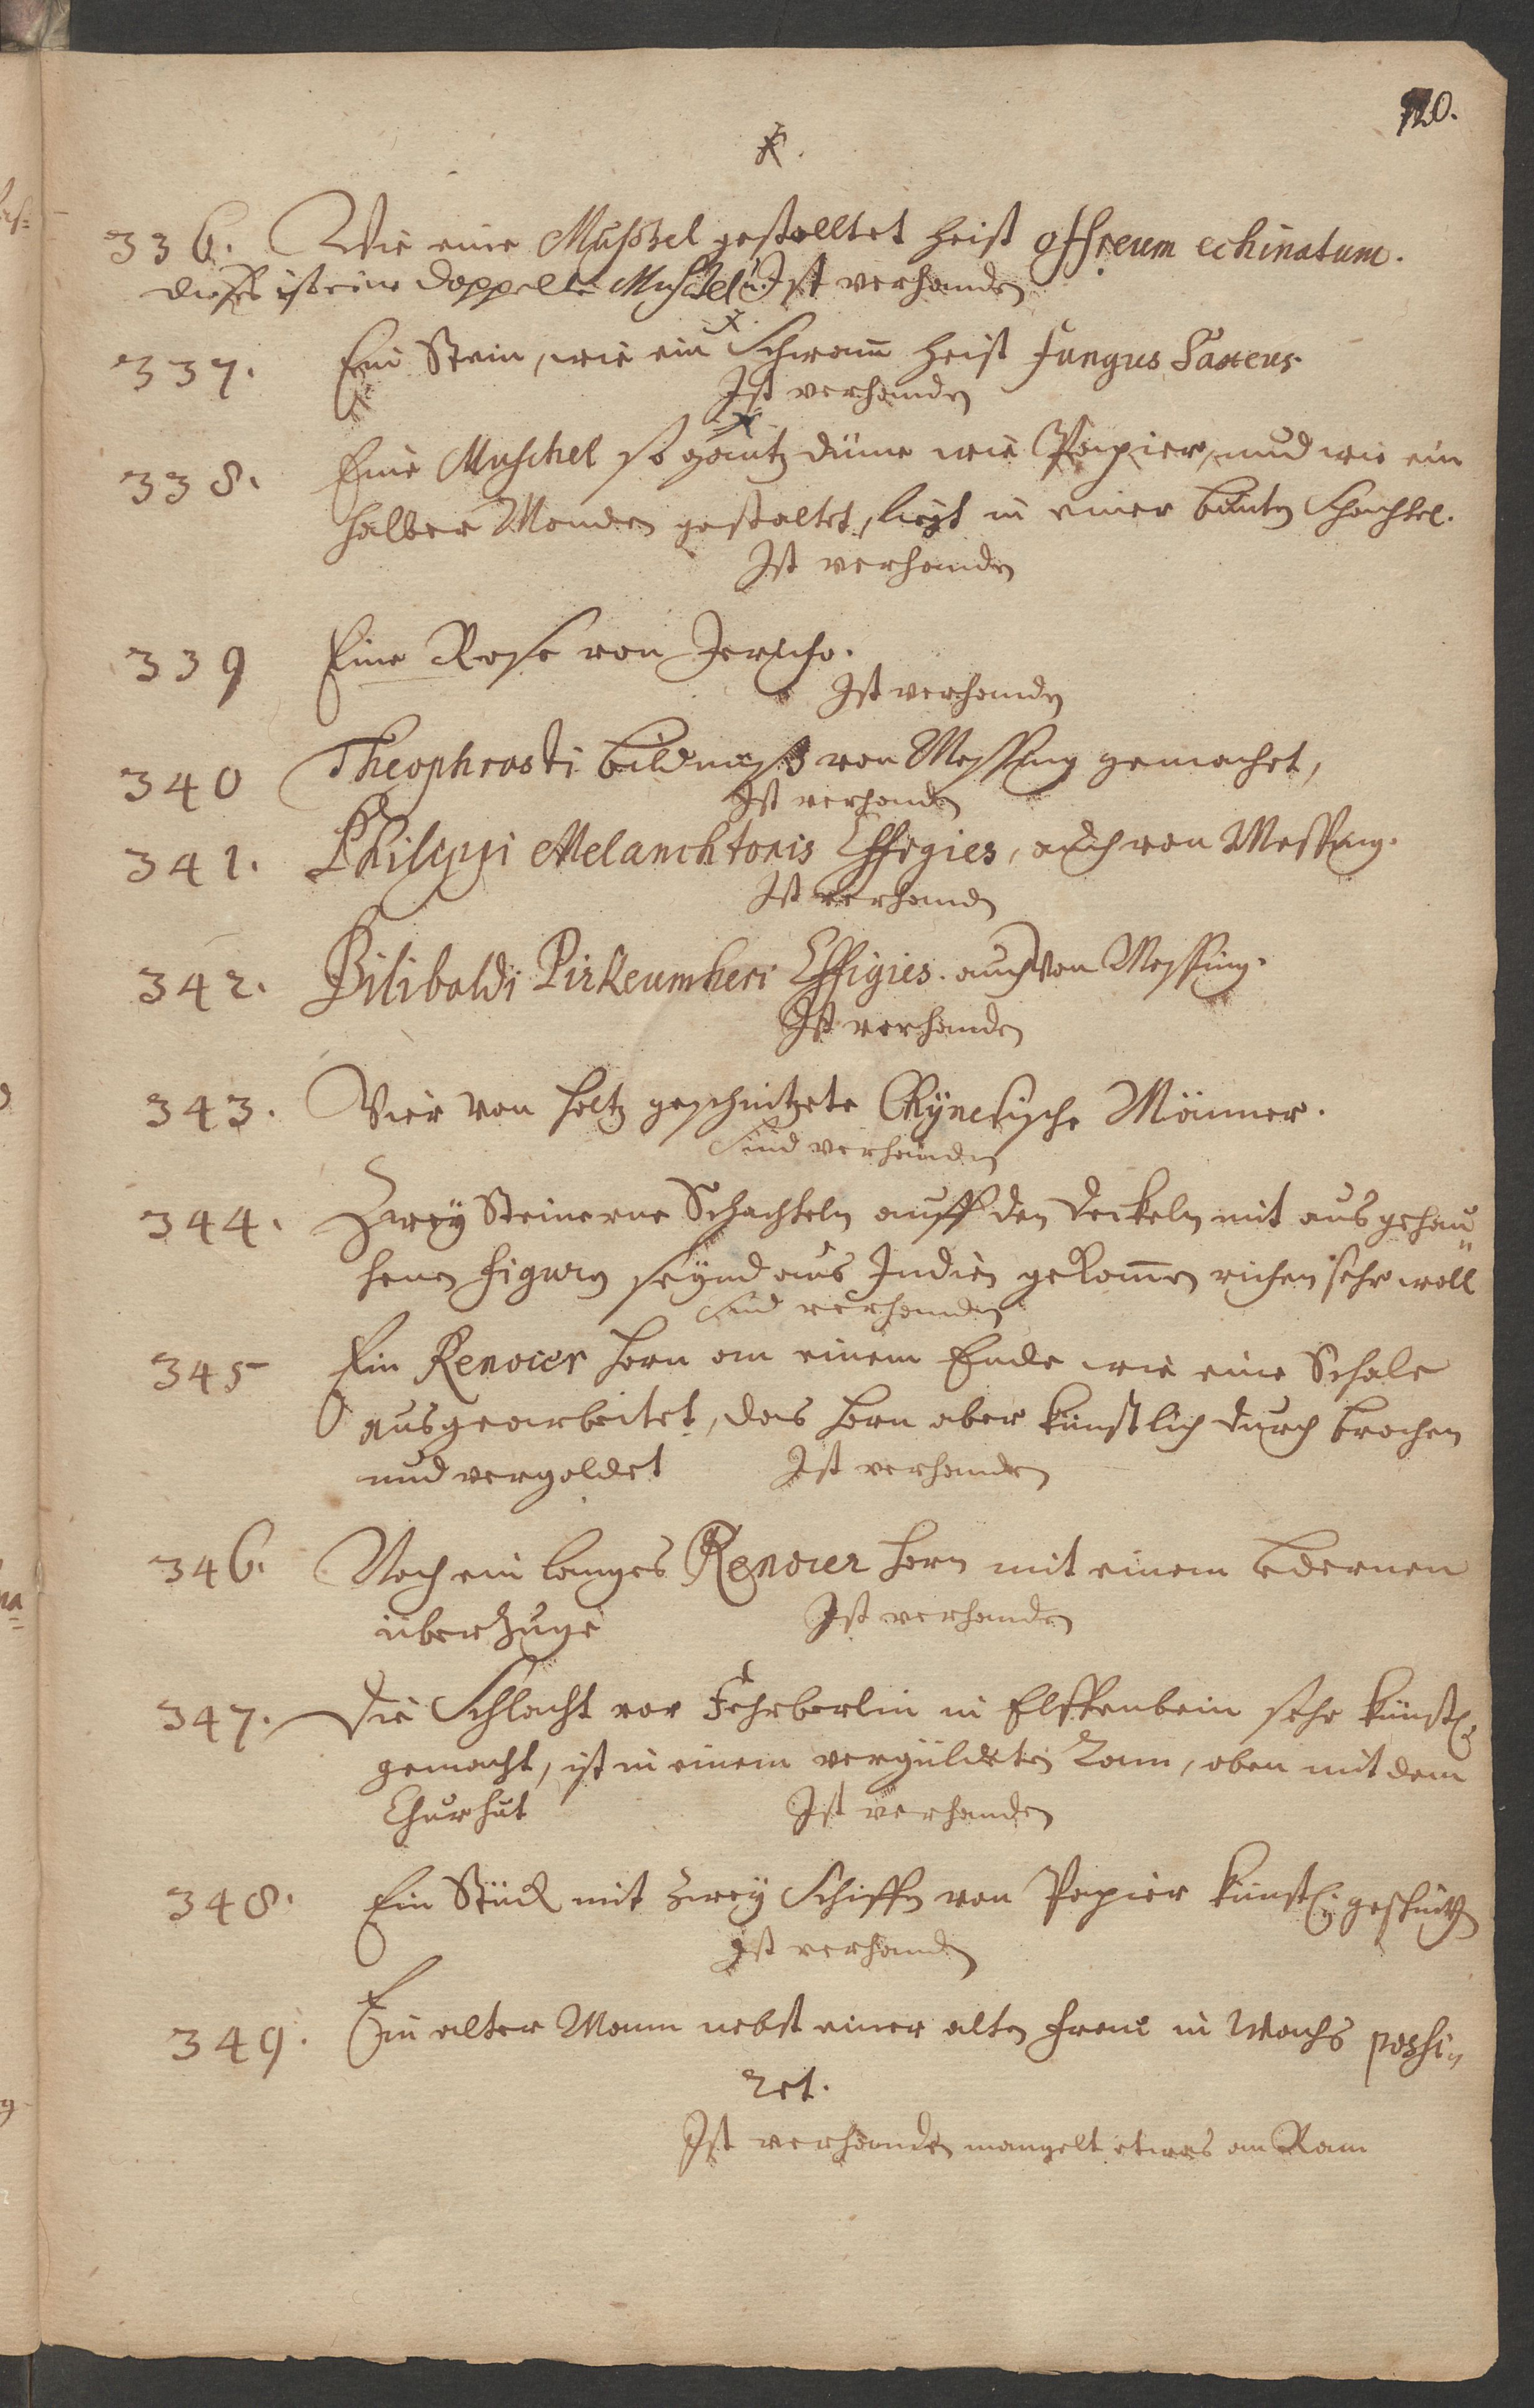 120.
x.
336. Wie eine Mußhel gestelltet heist ostreum echinatum.
dieses ist eine doppelte Muschel u. Ist verhanden
x.
337. Ein Stein, wie ein Schwam̄ heist Fungus Saxeus.
Ist verhanden
x
338. Eine Muschel so gantz dünne wie Papier, und wie ein
halber Monden gestaltet, liegt in einer bunten Schachtel.
Ist verhanden
339 Eine Rose von Jericho.
Ist verhanden
340 Theophrasti bildnuß von Messing gemachet,
Ist verhanden
341. Philippi Melanchtonis Effigies, auch von Messing.
Ist verhanden
342. Bilibaldi Pirkeumheri Effigies. auch von Messing.
Ist verhanden
343. Vier von holtz geschnitzete Chÿnesische Männer.
Sind verhanden
344. Zweÿ Steinerne Schachteln auff den deckeln mit ausgehau„
henen figuren seÿnd aus Indien gekom̄en richen sehr woll
Sind verhanden
345 Ein Renocer horn am einem Ende wie eine Schale
ausgearbeitet, das horn aber künstlich durch brochen
und vergoldet Ist verhanden
346. Noch ein langes Renocer horn mit einem ledernen
überzuge Ist verhanden
347. Die Schlacht vor Fehrberlin in Elffenbein sehr künstl:
gemacht, ist in einem vergüldeten Ram, oben mit dem
Churhut Ist verhanden
348. Ein Stück mit zweÿ Schiffen von Papier künstl: geschnitzt
Ist verhanden
349. Ein alter Mann nebst einer alten frau in Wachs poshi„
ret.
Ist verhanden mangelt etwas am Ram